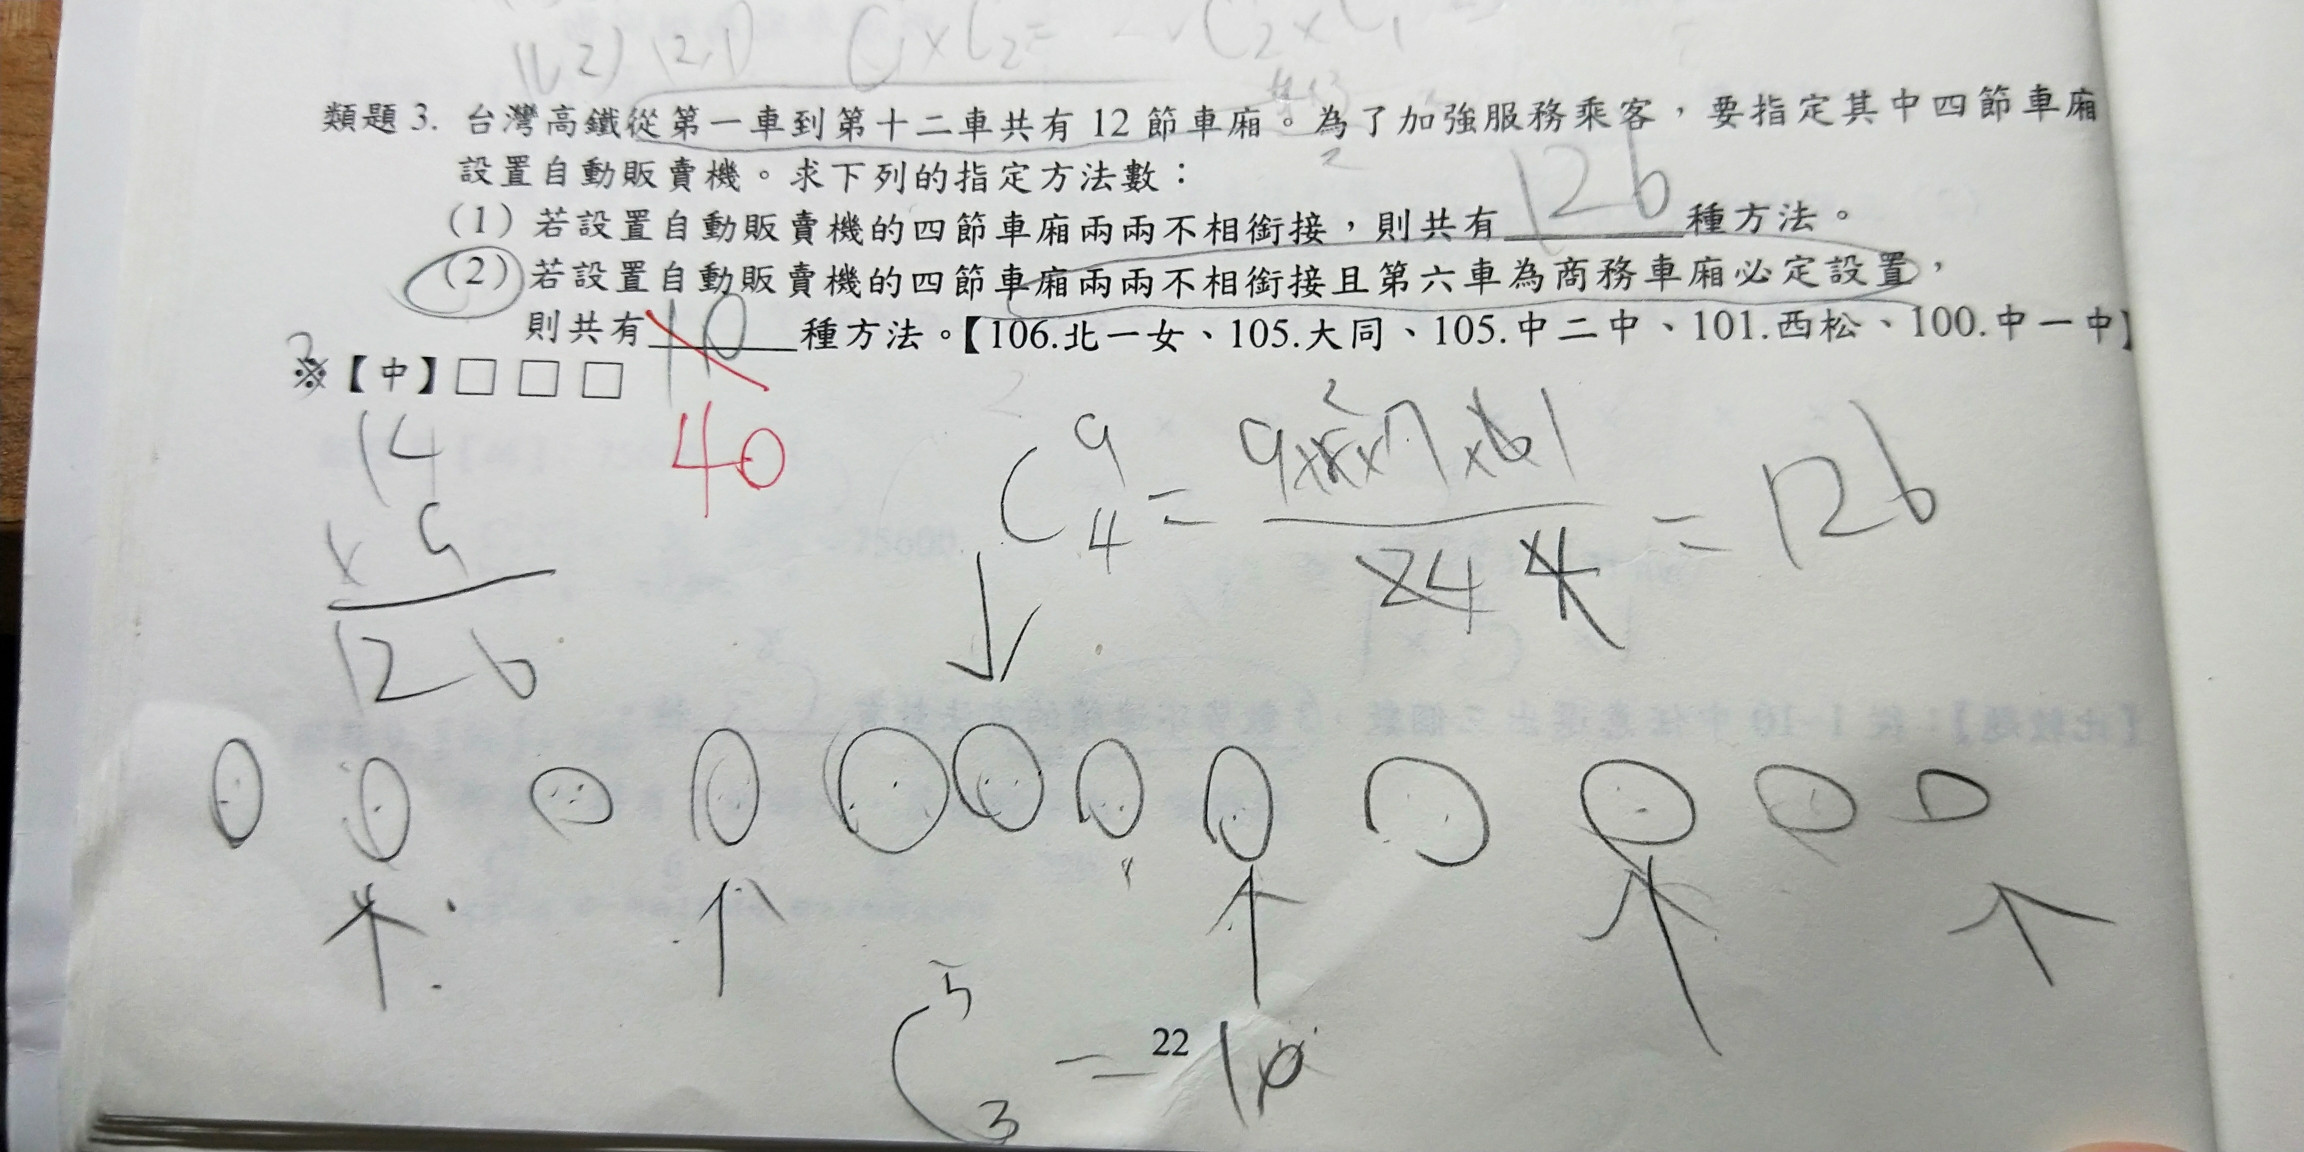 (1,2) (2,1)
類題 3. 台灣高鐵從第一車到第十二車共有 12 節車廂。為了加強服務乘客，要指定其中四節車廂
設置自動販賣機。求下列的指定方法數：
(1) 若設置自動販賣機的四節車廂兩兩不相銜接，則共有 126 種方法。
(2) 若設置自動販賣機的四節車廂兩兩不相銜接且第六車為商務車廂必定設置，
則共有 10 種方法。【106.北一女、105.大同、105.中二中、101.西松、100.中一中】
※【中】□ □ □
40
14
x 9
126
C 9 4 = 9x8x7x6 / 24 = 126
C 5 3 = 10
22